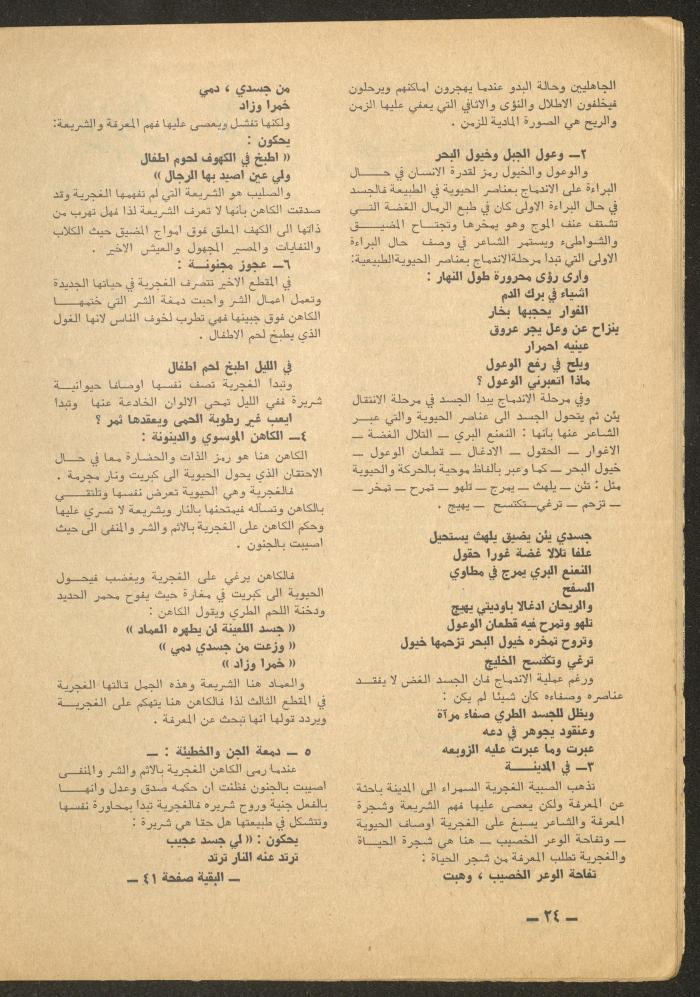 الجاهليين وحالة البدو عندما يهجرون اماكنهم ويرحلون
فيخلفون الاطلال والنؤى والاثافي التي يعفي عليها الزمن
والريح هي الصورة المادية للزمن .
٢ــ وعول الجبل وخيول البحر
والوعول والخيول رمز لقدرة الانسان في حـــال
البراءة على الاندماج بعناصر الحيوية في الطبيعة فالجسد
في حال البراءة الاولى كان في طبع الرمال الغضة التـي
تشتف عنف الموج وهو يمخرها وتجتــاح المضيــق
والشواطىء ويستمر الشاعر في وصف حال البراءة
الاولى التي تبدا مرحلةالاندماج بعناصر الحيويةالطبيعية:
وأرى رؤى محرورة طول النهار :
اشياء في برك الدم
الفوار يحجبها بخار
ينزاح عن وعل يجر عروق
عينيه احمرار
ويلح في رفع الوعول
ماذا اتعبرني الوعول ؟
وفي مرحلة الاندماج يبدأ الجسد في مرحلة الانتقال
يئن ثم يتحول الجسد الى عناصر الحيوية والتي عبــر
الشاعر عنها بأنها : النعنع البري ــ التلال الغضة ــ
الاغوار ــ الحقول ــ الادغال ــ قطعان الوعول ــ
خيول البحر ــ كما وعبر بألفاظ موحية بالحركة والحيوية
مثل : تئن ــ يلهث ــ يمرج ــ تلهو ــ تمرح ــ تمخر ــ
ــ تزحم ــ ترغي ــتكتسح ــ يهيج .
جسدي يئن يضيق يلهث يستحيل
علفا تلالا غضة غورا حقول
النعنع البري يمرج في مطاوي
السفح
والريحان ادغالا باوديتي يهيج
تلهو وتمرح فيه قطعان الوعول
وتروح تمخره خيول البحر تزحمها خيول
ترغي وتكتسح الخليج
ورغم عملية الاندماج فان الجسد الغض لا يفقــد
عناصره وصفاءه كان شيئا لم يكن :
ويظل للجسد الطري صفاء مرآة
وعنقود يجوهر في دعه
عبرت وما عبرت عليه الزوبعه
٣ــ في المدينــــة
تذهب الصبية الغجرية السمراء الى المدينة باحثة
عن المعرفة ولكن يعصى عليها فهم الشريعة وشجرة
المعرفة والشاعر يسبغ على الغجرية اوصاف الحيوية
ــ وتفاحة الوعر الخصيب ــ هنا هي شجرة الحيـاة
والغجرية تطلب المعرفة من شجر الحياة :
تفاحة الوعر الخصيب ، وهبت
من جسدي ، دمي
خمرا وزاد
ولكنها تفشل ويعصى عليها فهم المعرفة والشريعة:
يحكون :
« اطبخ في الكهوف لحوم اطفال
ولي عين اصيد بها الرجال »
والصليب هو الشريعة التي لم تفهمها الغجرية وقد
صدقت الكاهن بأنها لا تعرف الشريعة لذا فهل تهرب من
ذاتها الى الكهف المعلق فوق امواج المضيق حيث الكلاب
والنفايات والمصير المجهول والعيش الاخير .
٦ــ عجوز مجنونـــة :
في المقطع الاخير تتصرف الغجرية في حياتها الجديدة
وتعمل اعمال الشر واحبت دمغة الشر التي ختمهـــا
الكاهن فوق جبينها فهي تطرب لخوف الناس لانها الغول
الذي يطبخ لحم الاطفال .
في الليل اطبخ لحم اطفال
وتبدا الغجرية تصف نفسها اوصافا حيوانيــة
شريرة ففي الليل تمحي الالوان الخادعة عنها وتبدا
ايعب غير رطوبة الحمى ويعقدها ثمر ؟
٤ــ الكاهن الموسوي والدينونة :
الكاهن هنا هو رمز الذات والحضارة معا في حــال
الاحتقان الذي يحول الحيوية الى كبريت ونار مجرمة .
فالغجرية وهي الحيوية تعرض نفسها وتلتقــي
بالكاهن وتسأله فيمتحنها بالنار وبشريعة لا تسري عليها
وحكم الكاهن على الغجرية بالاثم والشر والمنفى الى حيث
اصيبت بالجنون .
فالكاهن يرغي على الغجرية ويغضب فيحــول
الحيوية الى كبريت في مغارة حيث يفوح محمر الحديد
ودخنة اللحم الطري ويقول الكاهن :
« جسد اللعينة لن يطهره العماد »
« وزعت من جسدي دمي »
« خمرا وزاد »
والعماد هنا الشريعة وهذه الجمل قالتها الغجرية
في المقطع الثالث لذا فالكاهن هنا يتهكم على الغجريــة
ويردد قولها انها تبحث عن المعرفة .
٥ ــ دمعة الجن والخطيئة : ــ
عندما رمى الكاهن الغجرية بالاثم والشر والمنفـى
اصيبت بالجنون فظنت ان حكمه صدق وعدل وانهــا
بالفعل جنية وروح شريره فالغجرية تبدا بمحاورة نفسها
وتتشكل في طبيعتها هل حقا هي شريرة :
يحكون : « لي جسد عجيب
ترتد عنه النار ترتد
ــ البقية صفحة ٤١ ــ
ــ ٢٤ ــ